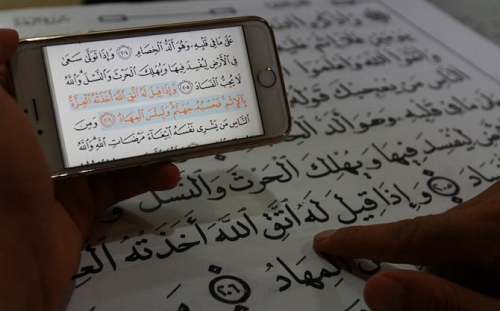 عَلَىٰ مَا فِي قَلْبِهِۦ وَهُوَ أَلَدُّ ٱلْخِصَامِ ٢٠٤ وَإِذَا تَوَلَّىٰ سَعَىٰ
فِي ٱلْأَرْضِ لِيُفْسِدَ فِيهَا وَيُهْلِكَ ٱلْحَرْثَ وَٱلنَّسْلَ وَٱللَّهُ
لَا يُحِبُّ ٱلْفَسَادَ ٢٠٥ وَإِذَا قِيلَ لَهُ ٱتَّقِ ٱللَّهَ أَخَذَتْهُ ٱلْعِزَّةُ
بِٱلْإِثْمِ فَحَسْبُهُۥ جَهَنَّمُ وَلَبِئْسَ ٱلْمِهَادُ ٢٠٦ وَمِنَ
ٱلنَّاسِ مَن يَشْرِي نَفْسَهُ ٱبْتِغَآءَ مَرْضَاتِ ٱللَّهِ وَٱللَّهُ
قَوْلُهُ
فِي قَلْبِهِۦ وَهُوَ أَلَدُّ
لِيُفْسِدَ فِيهَا وَيُهْلِكَ ٱلْحَرْثَ وَٱلنَّسْلَ
٢٠٥ وَإِذَا قِيلَ لَهُ ٱتَّقِ ٱللَّهَ أَخَذَتْهُ
ٱلْمِهَادُ ٢٠٦